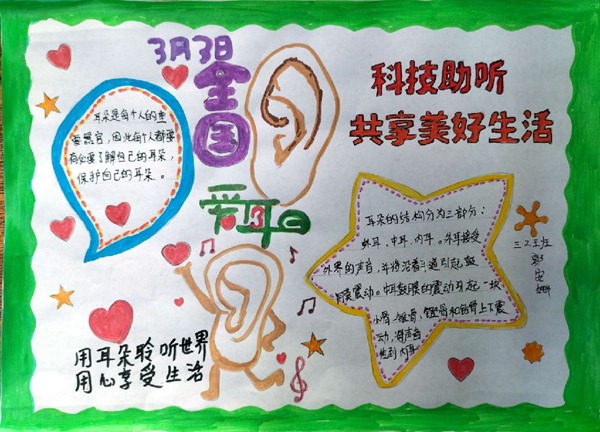 3月3日
全国
爱耳日
科技助听
共享美好生活
耳朵是每个人的重
要器官,因此每个人都要
有必要了解自己的耳朵,
保护自己的耳朵。
耳朵的结构分为三部分:
外耳、中耳、内耳。外耳接受
外界的声音,并将沿着耳道引起鼓
膜震动。中耳鼓膜的震动引起一块
小骨,锤骨,镫骨和砧骨上下震
动,将声音
传到内耳
三
班
用耳朵聆听世界
用心享受生活